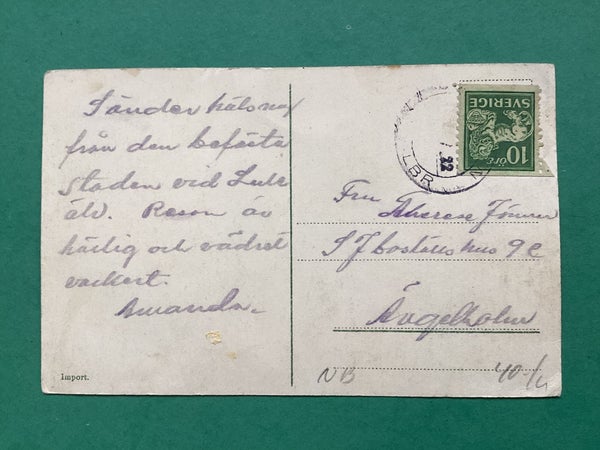 Sänder hälsnog
från den befästa
staden vid Lule
älv. Resan är
härlig och vädret
vackert.
Amanda.
Import.
SVERIGE
10 ÖRE
LBR
22
Fru Therese Jönsson
SJ bostälshus 9 C
Ängelholm
NB
40-/